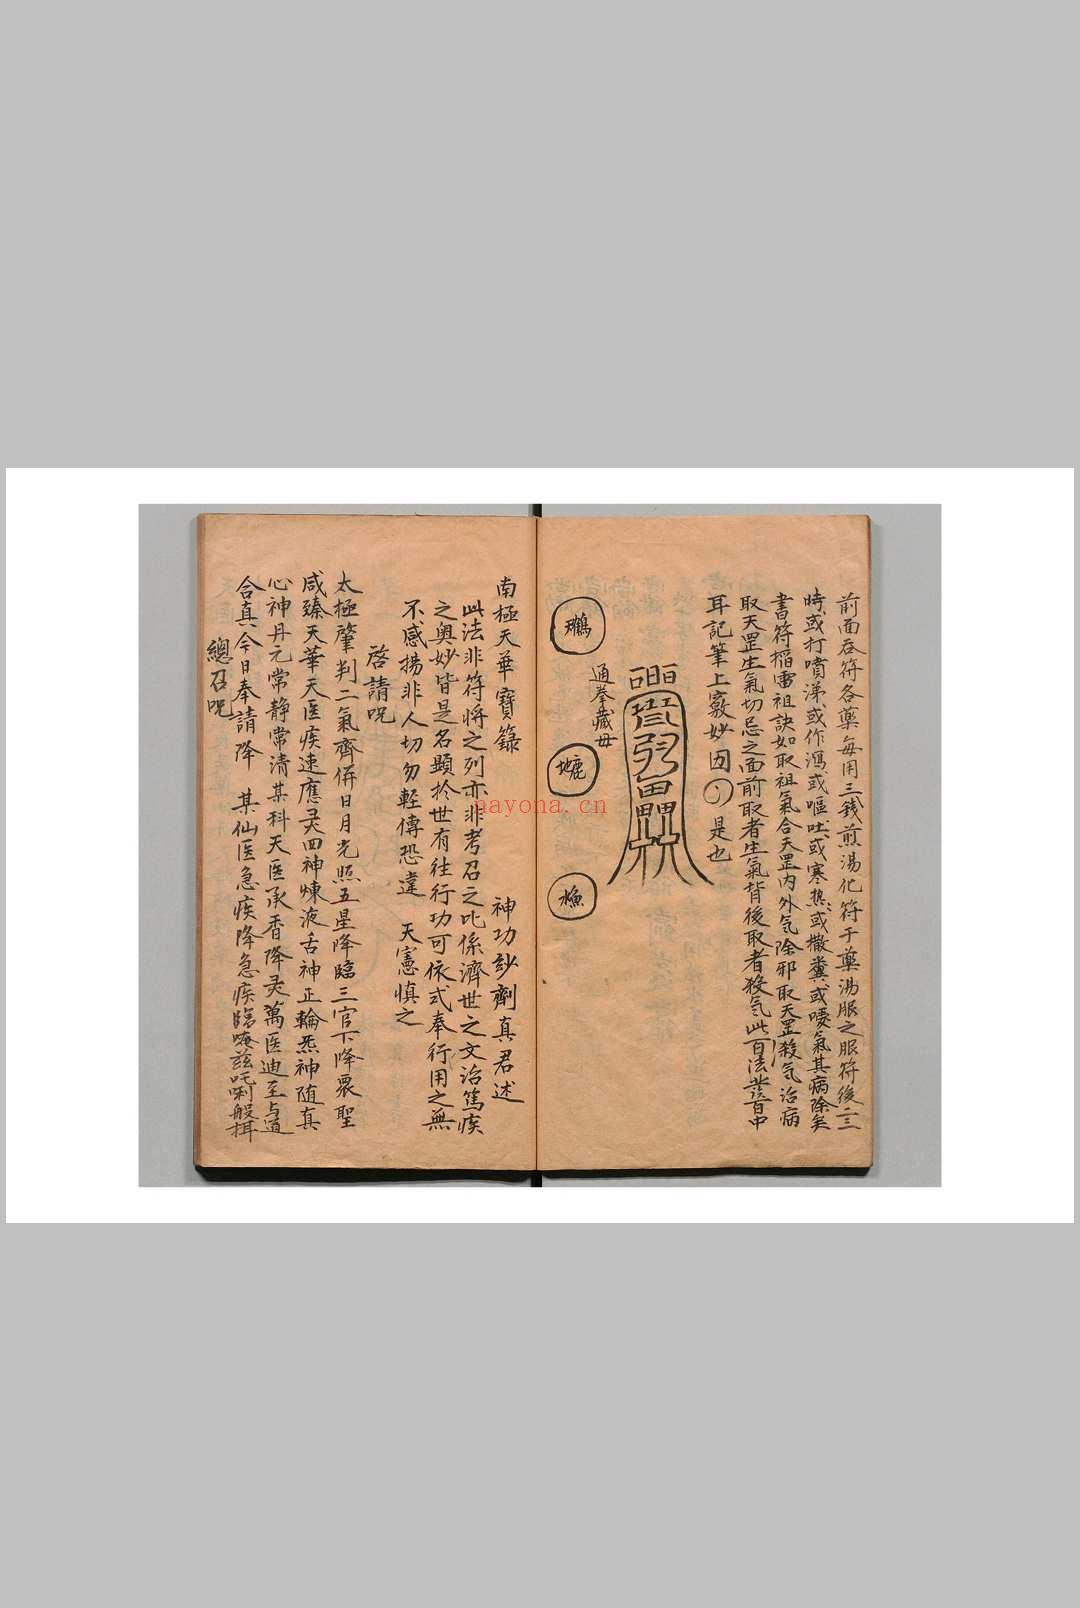 前面吞符各藥每用三錢煎湯化符于藥湯服之服符後二三
時或打噴涕或作瀉或嘔吐或寒热或撒糞或噯氣其病除矣
書符搯雷祖訣如取祖氣合天罡内外気除邪取天罡殺気治病
取天罡生氣切忌之面前取者生氣背後取者殺気此百法並百中
耳記筆上竅妙因是也
通拳藏毋
南極天華寶籙
神功玅劑真君述
此法非符將之列亦非考召之比係濟世之文治篤疾
之奥妙皆是名顯扵世有往行功可依式奉行用之無
不感揚非人切勿輕傳恐違 天憲慎之
啓請呪
太極肇判二氣齊併日月光照五星降臨三官下降衆聖
咸臻天華天医疾速應灵四神煉液舌神正輪炁神随真
心神丹元常静常清某科天医承香降灵萬医迪至与道
合真今日奉請降 某仙医急疾降急疾臨唵兹吒唎般揖
總召呪
nayona.cn